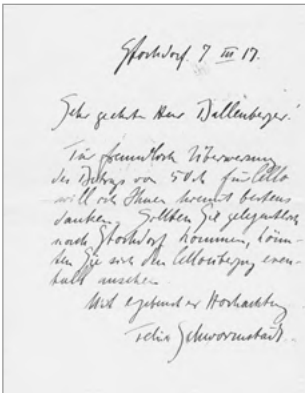 Stockdorf. 7 III 17.
Sehr geehrter Herr Dillenberger!
Für freundliche Überweisung
des Betrags von 50 M für Cello
will ich Ihnen hiermit bestens
danken. Sollten Sie gelegentlich
nach Stockdorf kommen, könn-
ten Sie sich den Celloüberzug even-
tuell ansehen.
Mit ergebenster Hochachtung
Felix Schwormstädt.